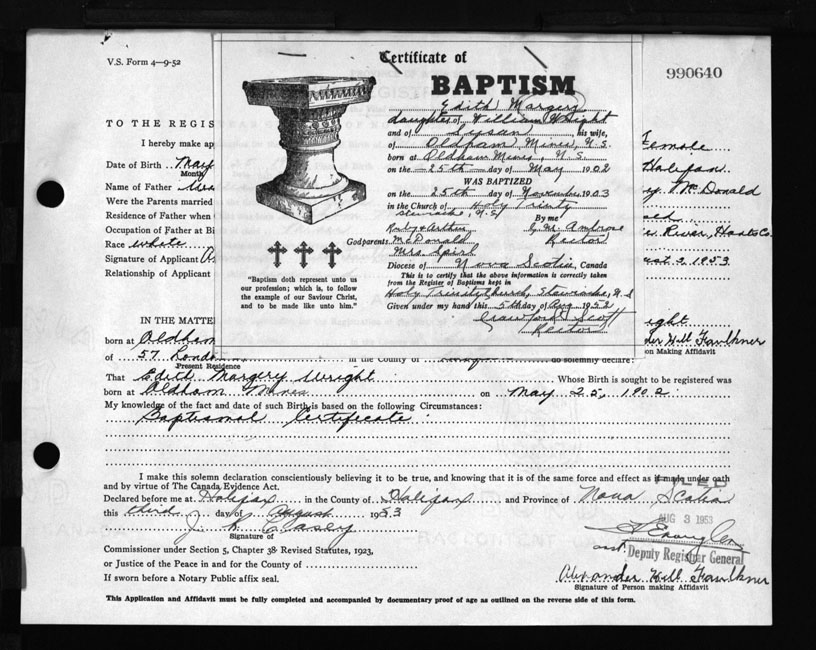 V.S. Form 4—9-52
990640
Certificate of
BAPTISM
Edith Margery
daughter of William Wright
and of Susan his wife,
of Oldham Mines, N.S.
born at Oldham Mines, N.S.
on the 25th day of May 1902
WAS BAPTIZED
on the 25th day of November 1903
in the Church of Holy Trinity
Stewiacke, N.S. By me
Kirby Arthur Ambrose
Godparents McDonald Rector
Mrs.
Diocese of Nova Scotia, Canada
This is to certify that the above information is correctly taken
from the Register of Baptisms kept in
Holy Trinity Church, Stewiacke, N.S
Given under my hand this 5th day of Aug 1952
Crawford Scott
Rector
"Baptism doth represent unto us
our profession; which is, to follow
the example of our Saviour Christ,
and to be made like unto him."
TO THE REGIS
I hereby make ap
Female
Date of Birth May
Month
Halifax
Name of Father
McDonald
Were the Parents married
Residence of Father when
Occupation of Father at Bi
River, Hants Co.
Race white
Signature of Applicant
2 1953
Relationship of Applicant
IN THE MATTE
born at Oldham
Will Faulkner
on Making Affidavit
of 57 London in the County of do solemnly declare:
Present Residence
That Edith Margery Wright Whose Birth is sought to be registered was
born at Oldham Mines on May 25, 1902
My knowledge of the fact and date of such Birth is based on the following Circumstances:
Baptismal Certificate
I make this solemn declaration conscientiously believing it to be true, and knowing that it is of the same force and effect as if made under oath
and by virtue of The Canada Evidence Act.
FILED
Declared before me at Halifax in the County of Halifax and Province of Nova Scotia
this third day of August 1953
AUG 3 1953
J. K. Casey
Signature of
Commissioner under Section 5, Chapter 38 Revised Statutes, 1923,
Deputy Registrar General
or Justice of the Peace in and for the County of
If sworn before a Notary Public affix seal.
Alexander Will Faulkner
Signature of Person making Affidavit
This Application and Affidavit must be fully completed and accompanied by documentary proof of age as outlined on the reverse side of this form.